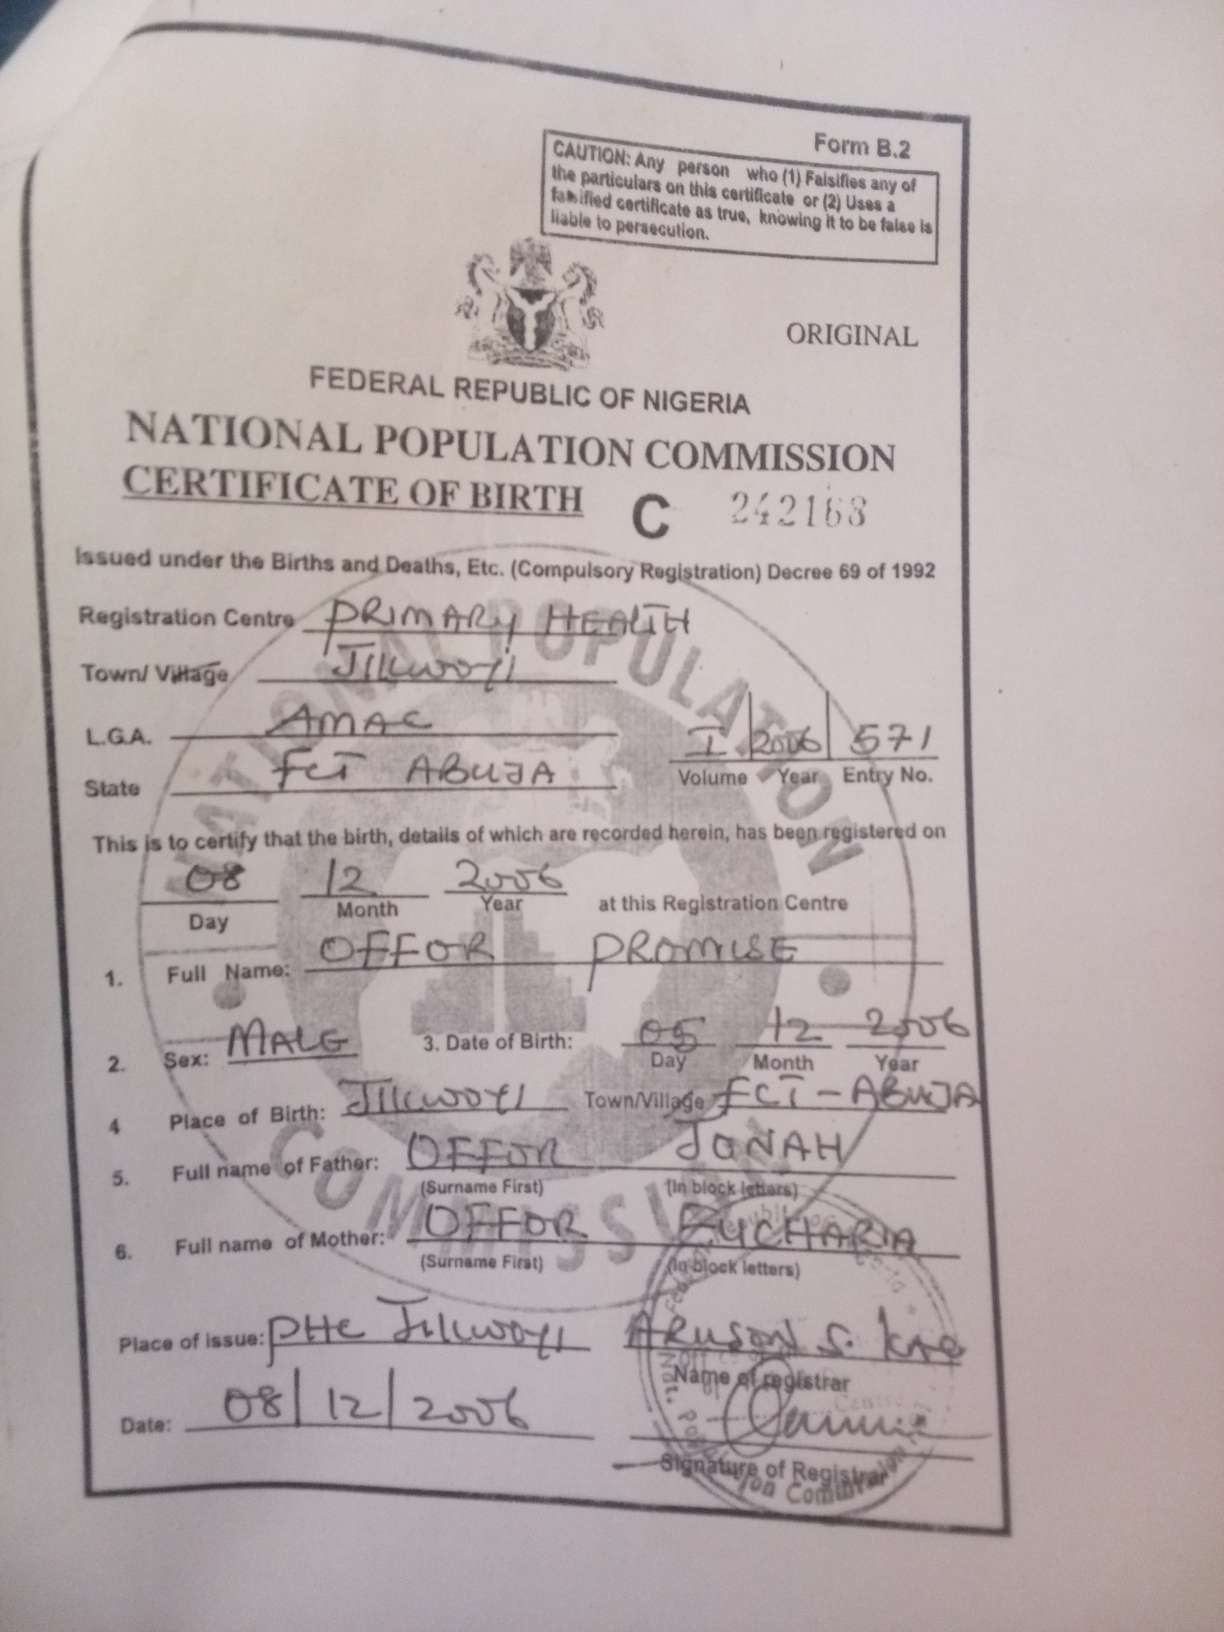 Form B.2
CAUTION: Any person who (1) Falsifies any of
the particulars on this certificate or (2) Uses a
falsified certificate as true, knowing it to be false is
liable to persecution.
ORIGINAL
FEDERAL REPUBLIC OF NIGERIA
NATIONAL POPULATION COMMISSION
CERTIFICATE OF BIRTH C 242168
Issued under the Births and Deaths, Etc. (Compulsory Registration) Decree 69 of 1992
Registration Centre PRIMARY HEALTH
Town/ Village JIKWOYI
L.G.A. AMAC
I 2006 571
State FCT ABUJA
Volume Year Entry No.
This is to certify that the birth, details of which are recorded herein, has been registered on
08 12 2006 at this Registration Centre
Day Month Year
1. Full Name: OFFOR PROMISE
2. Sex: MALE 3. Date of Birth: 05 12 2006
Day Month Year
4 Place of Birth: JIKWOYI Town/Village FCT - ABUJA
5. Full name of Father: OFFOR JONAH
(Surname First) (In block letters)
6. Full name of Mother: OFFOR EUCHARIA
(Surname First) (In block letters)
Place of issue: PHC Jikwoyi
Name of registrar
Date: 08/12/2006
Signature of Registrar
NATIONAL POPULATION COMMISSION